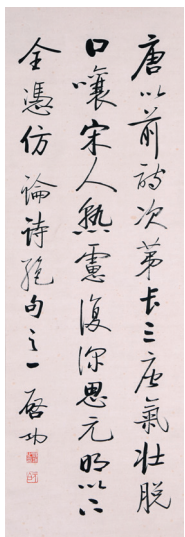 唐以前詩次第長三唐氣壯脫
口嚷宋人熟慮復深思元明以下
全憑仿 論詩絕句之一 啓功